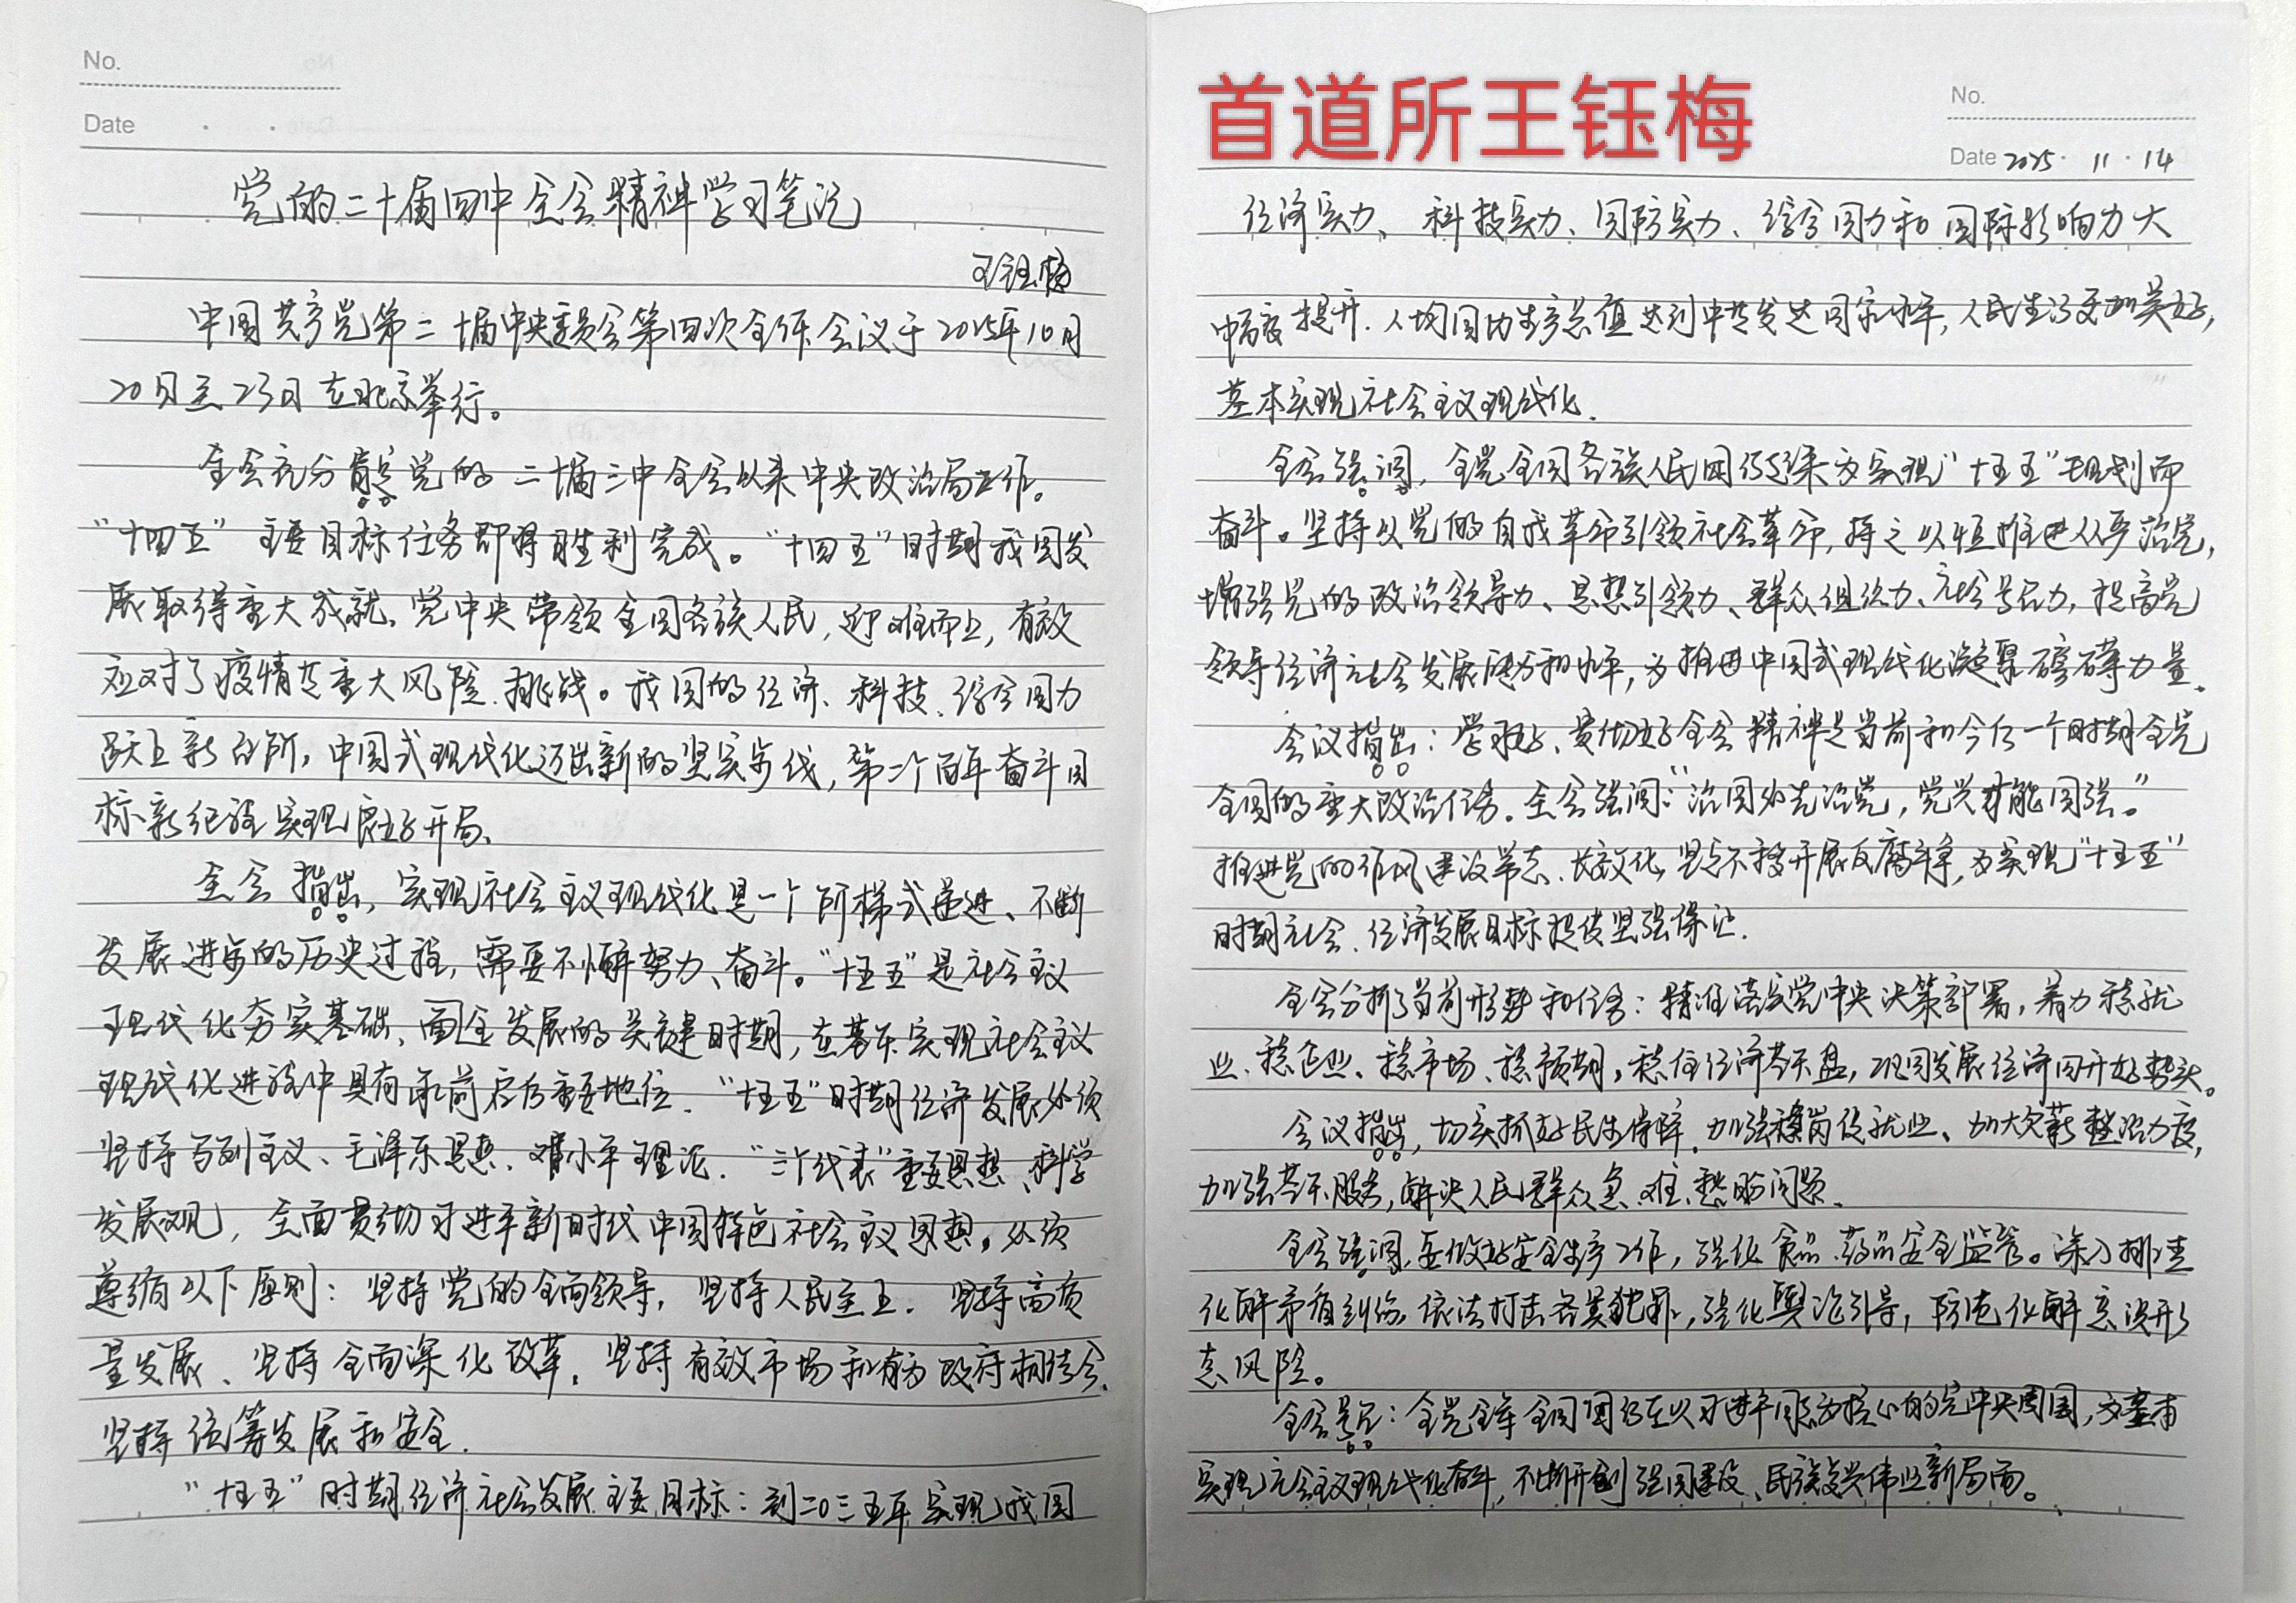 No.
Date
党的二十届四中全会精神学习笔记
王钰梅
中国共产党第二十届中央委员会第四次全体会议于2025年10月
20日至23日在北京举行。
全会充分肯定党的二十届三中全会以来中央政治局工作。
“十四五”主要目标任务即将胜利完成。“十四五”时期我国发
展取得重大成就、党中央带领全国各族人民,迎难而上,有效
应对了疫情等重大风险、挑战。我国的经济、科技、综合国力
跃上新台阶,中国式现代化迈出新的坚实步伐,第二个百年奋斗目
标新征程实现良好开局、
全会指出,实现社会主义现代化是一个阶梯式递进、不断
发展进步的历史过程,需要不懈努力、奋斗。“十五五”是社会主义
现代化夯实基础、全面发展的关键时期,在基本实现社会主义
现代化进程中具有承前启后重要地位.“十五五”时期经济发展必须
坚持马列主义、毛泽东思想、邓小平理论.“三个代表”重要思想、科学
发展观,全面贯彻习近平新时代中国特色社会主义思想。必须
遵循以下原则:坚持党的全面领导,坚持人民至上.坚持高质
量发展、坚持全面深化改革.坚持有效市场和有为政府相结合.
坚持统筹发展和安全.
“十五五”时期经济社会发展主要目标:到二〇三五年实现我国
首道所王钰梅
No.
Date 2025·11·14
经济实力、科技实力、国防实力、综合国力和国际影响力大
幅度提升.人均国内生产总值达到中等发达国家水平,人民生活更加美好,
基本实现社会主义现代化.
全会强调,全党全国各族人民团结起来为实现“十五五”规划而
奋斗。坚持以党的自我革命引领社会革命,持之以恒推进从严治党,
增强党的政治领导力、思想引领力、群众组织力、社会号召力,提高党
领导经济社会发展能力和水平,为推进中国式现代化凝聚磅礴力量.
会议指出:学习好、贯彻好全会精神是当前和今后一个时期全党
全国的重大政治任务.全会强调:“治国必先治党,党兴才能国强。”
推进党的作风建设常态、长效化,坚定不移开展反腐斗争,为实现“十五五”
时期社会、经济发展目标提供坚强保证.
全会分析了当前形势和任务:精准落实党中央决策部署,着力稳就
业、稳企业、稳市场、稳预期,稳住经济基本盘,巩固发展经济回升好势头。
会议指出,切实抓好民生保障.加强稳岗促就业、加大欠薪整治力度,
加强基本服务,解决人民群众急、难、愁盼问题.
全会强调,要做好安全生产工作,强化食品药品安全监管。深入排查
化解矛盾纠纷.依法打击各类犯罪,强化舆论引导,防范化解意识形
态风险。
全会号召:全党全军全国团结在以习近平同志为核心的党中央周围,为基本
实现社会主义现代化奋斗,不断开创强国建设、民族复兴伟业新局面。